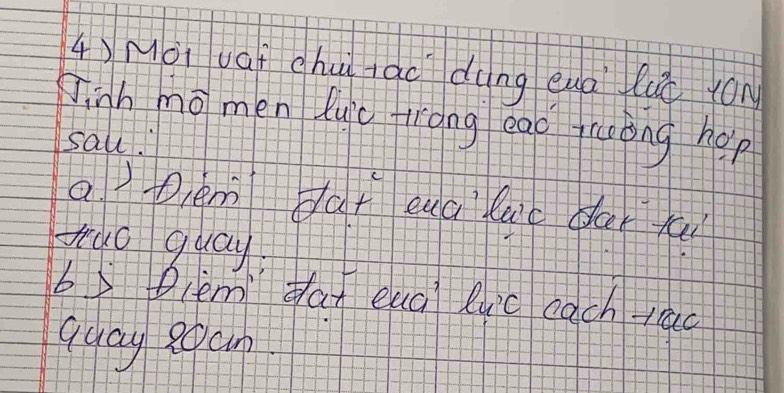 4) Một vật chịu tác dụng của lực 10N
Tính mô men lực trong các trường hợp
sau:
a) Điểm đặt của lực đặt tại
trục quay.
b) Điểm đặt của lực cách trục
quay 20cm.